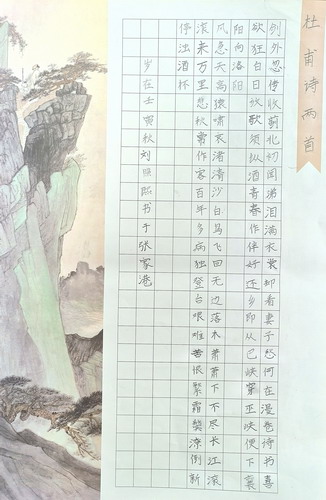 杜甫诗两首
剑外忽传收蓟北初闻涕泪满衣裳却看妻子愁何在漫卷诗书喜
欲狂白日放歌须纵酒青春作伴好还乡即从巴峡穿巫峡便下襄
阳向洛阳
风急天高猿啸哀渚清沙白鸟飞回无边落木萧萧下不尽长江滚
滚来万里悲秋常作客百年多病独登台艰难苦恨繁霜鬓潦倒新
停浊酒杯
岁在壬寅秋刘昭书于张家港